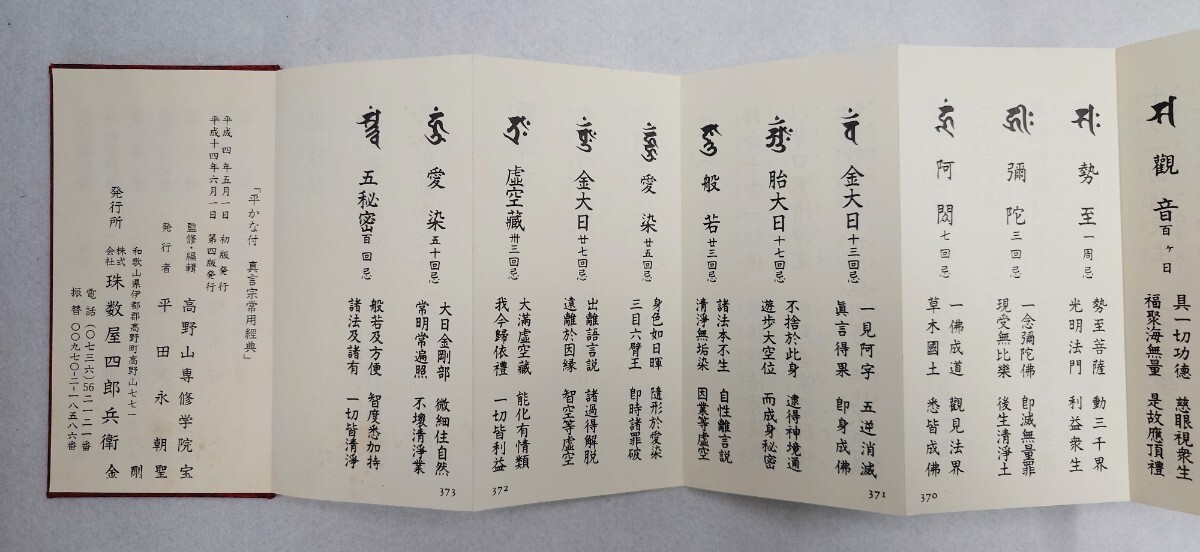 觀音百ヶ日
具一切功德 慈眼視衆生
福聚海無量 是故應頂禮
勢至一周忌
勢至菩薩 動三千界
光明法門 利益衆生
彌陀三回忌
一念彌陀佛 即滅無量罪
現受無比樂 後生清淨土
阿閦七回忌
一佛成道 觀見法界
草木國土 悉皆成佛
370
金大日十三回忌
一見阿字 五逆消滅
眞言得果 即身成佛
胎大日十七回忌
不捨於此身 逮得神境通
遊步大空位 而成身秘密
般若廿三回忌
諸法本不生 自性離言說
清淨無垢染 因業等虛空
371
愛染廿五回忌
身色如日暉 隨形於愛染
三目六臂王 即時諸罪破
金大日廿七回忌
出離語言説 諸過得解脱
遠離於因緣 智空等虛空
虛空藏卅三回忌
大滿虛空藏 能化有情類
我今歸依禮 一切皆利益
372
愛染五十回忌
大日金剛部 微細住自然
常明常遍照 不壞清淨業
五秘密百回忌
般若及方便 智度悉加持
諸法及諸有 一切皆清淨
373
「平かな付 真言宗常用経典」
平成四年五月一日 初版発行
平成十四年六月一日 第四版発行
監修・編輯 高野山専修学院宝
発行者 平田永朝聖
和歌山県伊都郡高野町高野山七七一
発行所 株式会社 珠数屋四郎兵衛
金剛
電話(〇七三六)56二一二一番
振替〇〇九七〇-二-一八五八六番